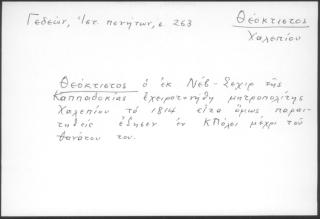 Γεδεών, Ἱστ. πενήτων, σ. 263
Θεόκτιστος
Χαλεπίου
Θεόκτιστος ὁ ἐκ Νέβ-Σεχὶρ τῆς
Καππαδοκίας ἐχειροτονήθη μητροπολίτης
Χαλεπίου τὸ 1814 εἶτα ὅμως παραι-
τηθεὶς ἔζησεν ἐν ΚΠόλει μέχρι τοῦ
θανάτου του.